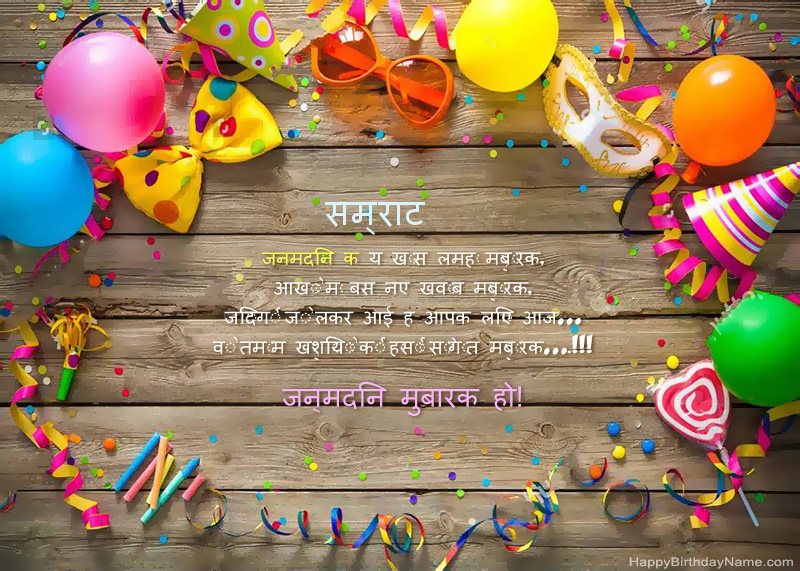 सम्राट
जनमदिन क य खास लमह मबारक,
आखो म बस नए खवाब मबारक,
जिदगी जो लकर आई ह आपक लिए आज...
वो तमाम खशियो की हसी सगात मबारक...!!!
जन्मदिन मुबारक हो!
HappyBirthdayName.com